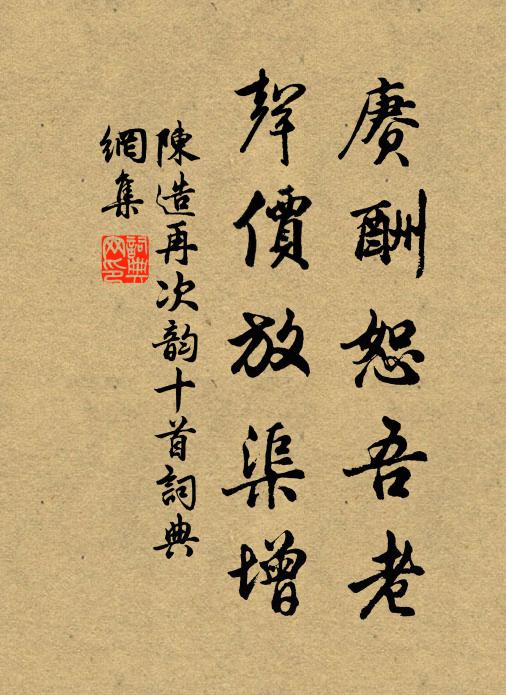 賡酬恕吾老
聲價放渠增
陳造再次韵十首詞典
網集
詞典网印